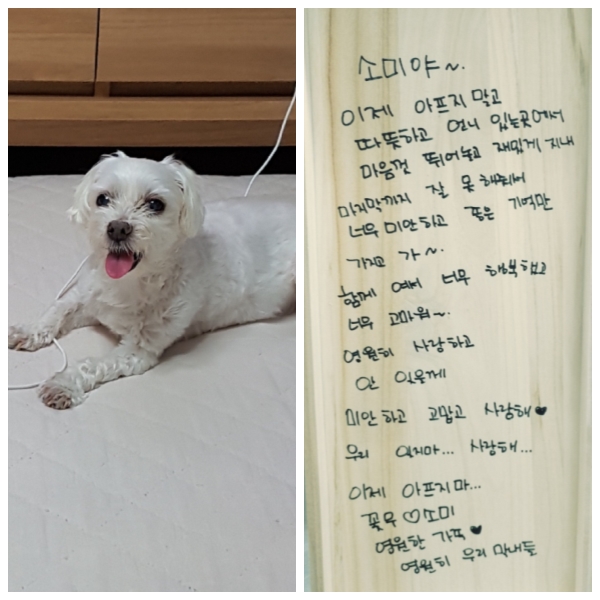 소미야~.
이제 아프지 말고
따뜻하고 언니 있는곳에서
마음껏 뛰어놀고 재밌게 지내
마지막까지 잘 못해줘서
너무 미안하고 좋은 기억만
가지고 가~.
함께 여서 너무 행복했고
너무 고마워~.
영원히 사랑하고
안 잊을게
미안하고 고맙고 사랑해♥
우리 잊지마... 사랑해...
이제 아프지마...
꽃우♡소미
영원한 가족♥
영원히 우리 막내들